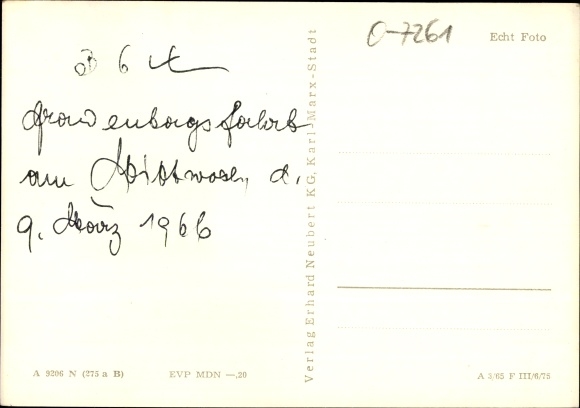 O-7261
Echt Foto
6
Frauenbergsfahrt
am Mittwoch, d.
9. März 1966
Verlag Erhard Neubert KG, Karl-Marx-Stadt
A 9206 N (275 a B)
EVP MDN —,20
A 3/65 F III/6/75